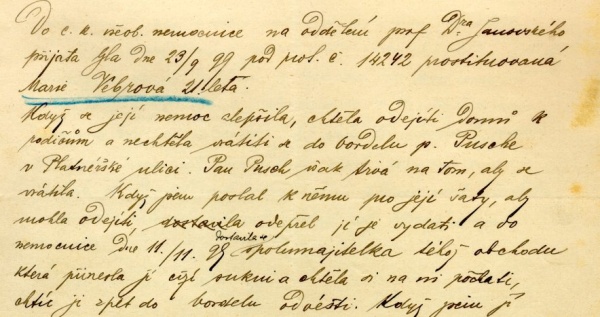 Do c. k. všeob. nemocnice na oddělení prof Dra Janovského
přijata byla dne 23/9 99 pod prot. č. 14242 prostituovaná
Marie Vebrová 21 letá.
Když se její nemoc zlepšila, chtěla odejíti domů k
rodičům a nechtěla vrátiti se do bordelu p. Pusche
v Platnéřské ulici. Pan Pusch však trvá na tom, aby se
vrátila. Když jsem poslal k němu pro její šaty, aby
mohla odejíti, odepřel jí je vydati a do
nemocnice dne 11/11. 99 dostavila se spolumajitelka téhož obchodu
která přinesla jí cizí sukni a chtěla si na ni počkati,
chtíc ji zpět do bordelu odvésti. Když jsem jí